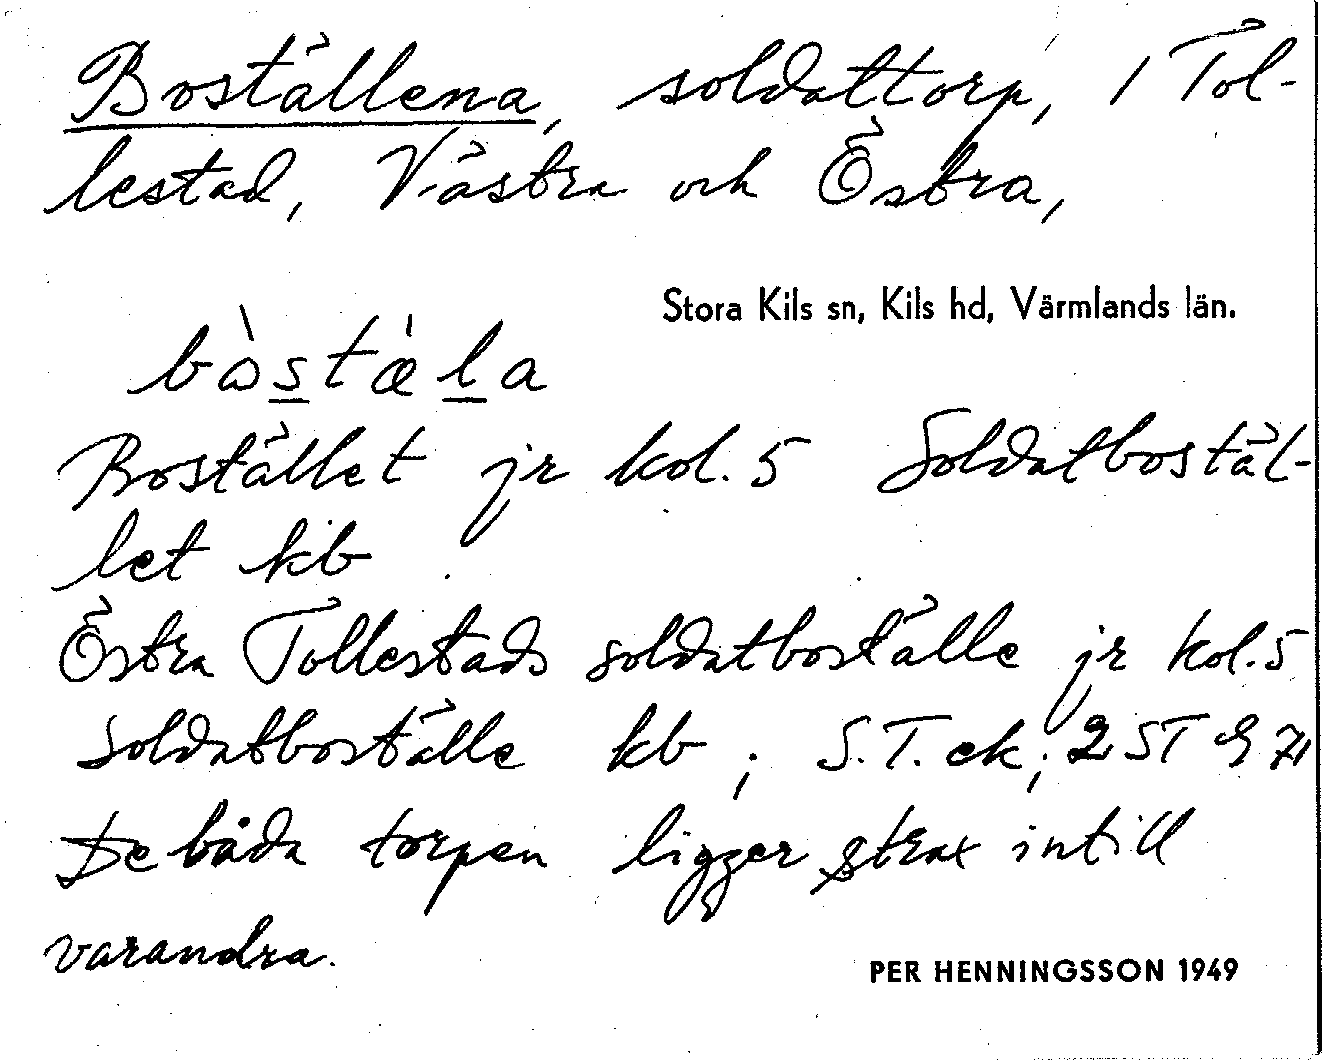 Boställena, soldattorp, i Tol-
lestad, Västra och Östra,
Stora Kils sn, Kils hd, Värmlands län.
bòstæ̀la
Bostället jr kol. 5 Soldatbostäl-
let kb
Östra Tollestads soldatboställe jr kol. 5
Soldatboställe kb; S.T. ek;
De båda torpen ligger strax intill
varandra.
PER HENNINGSSON 1949